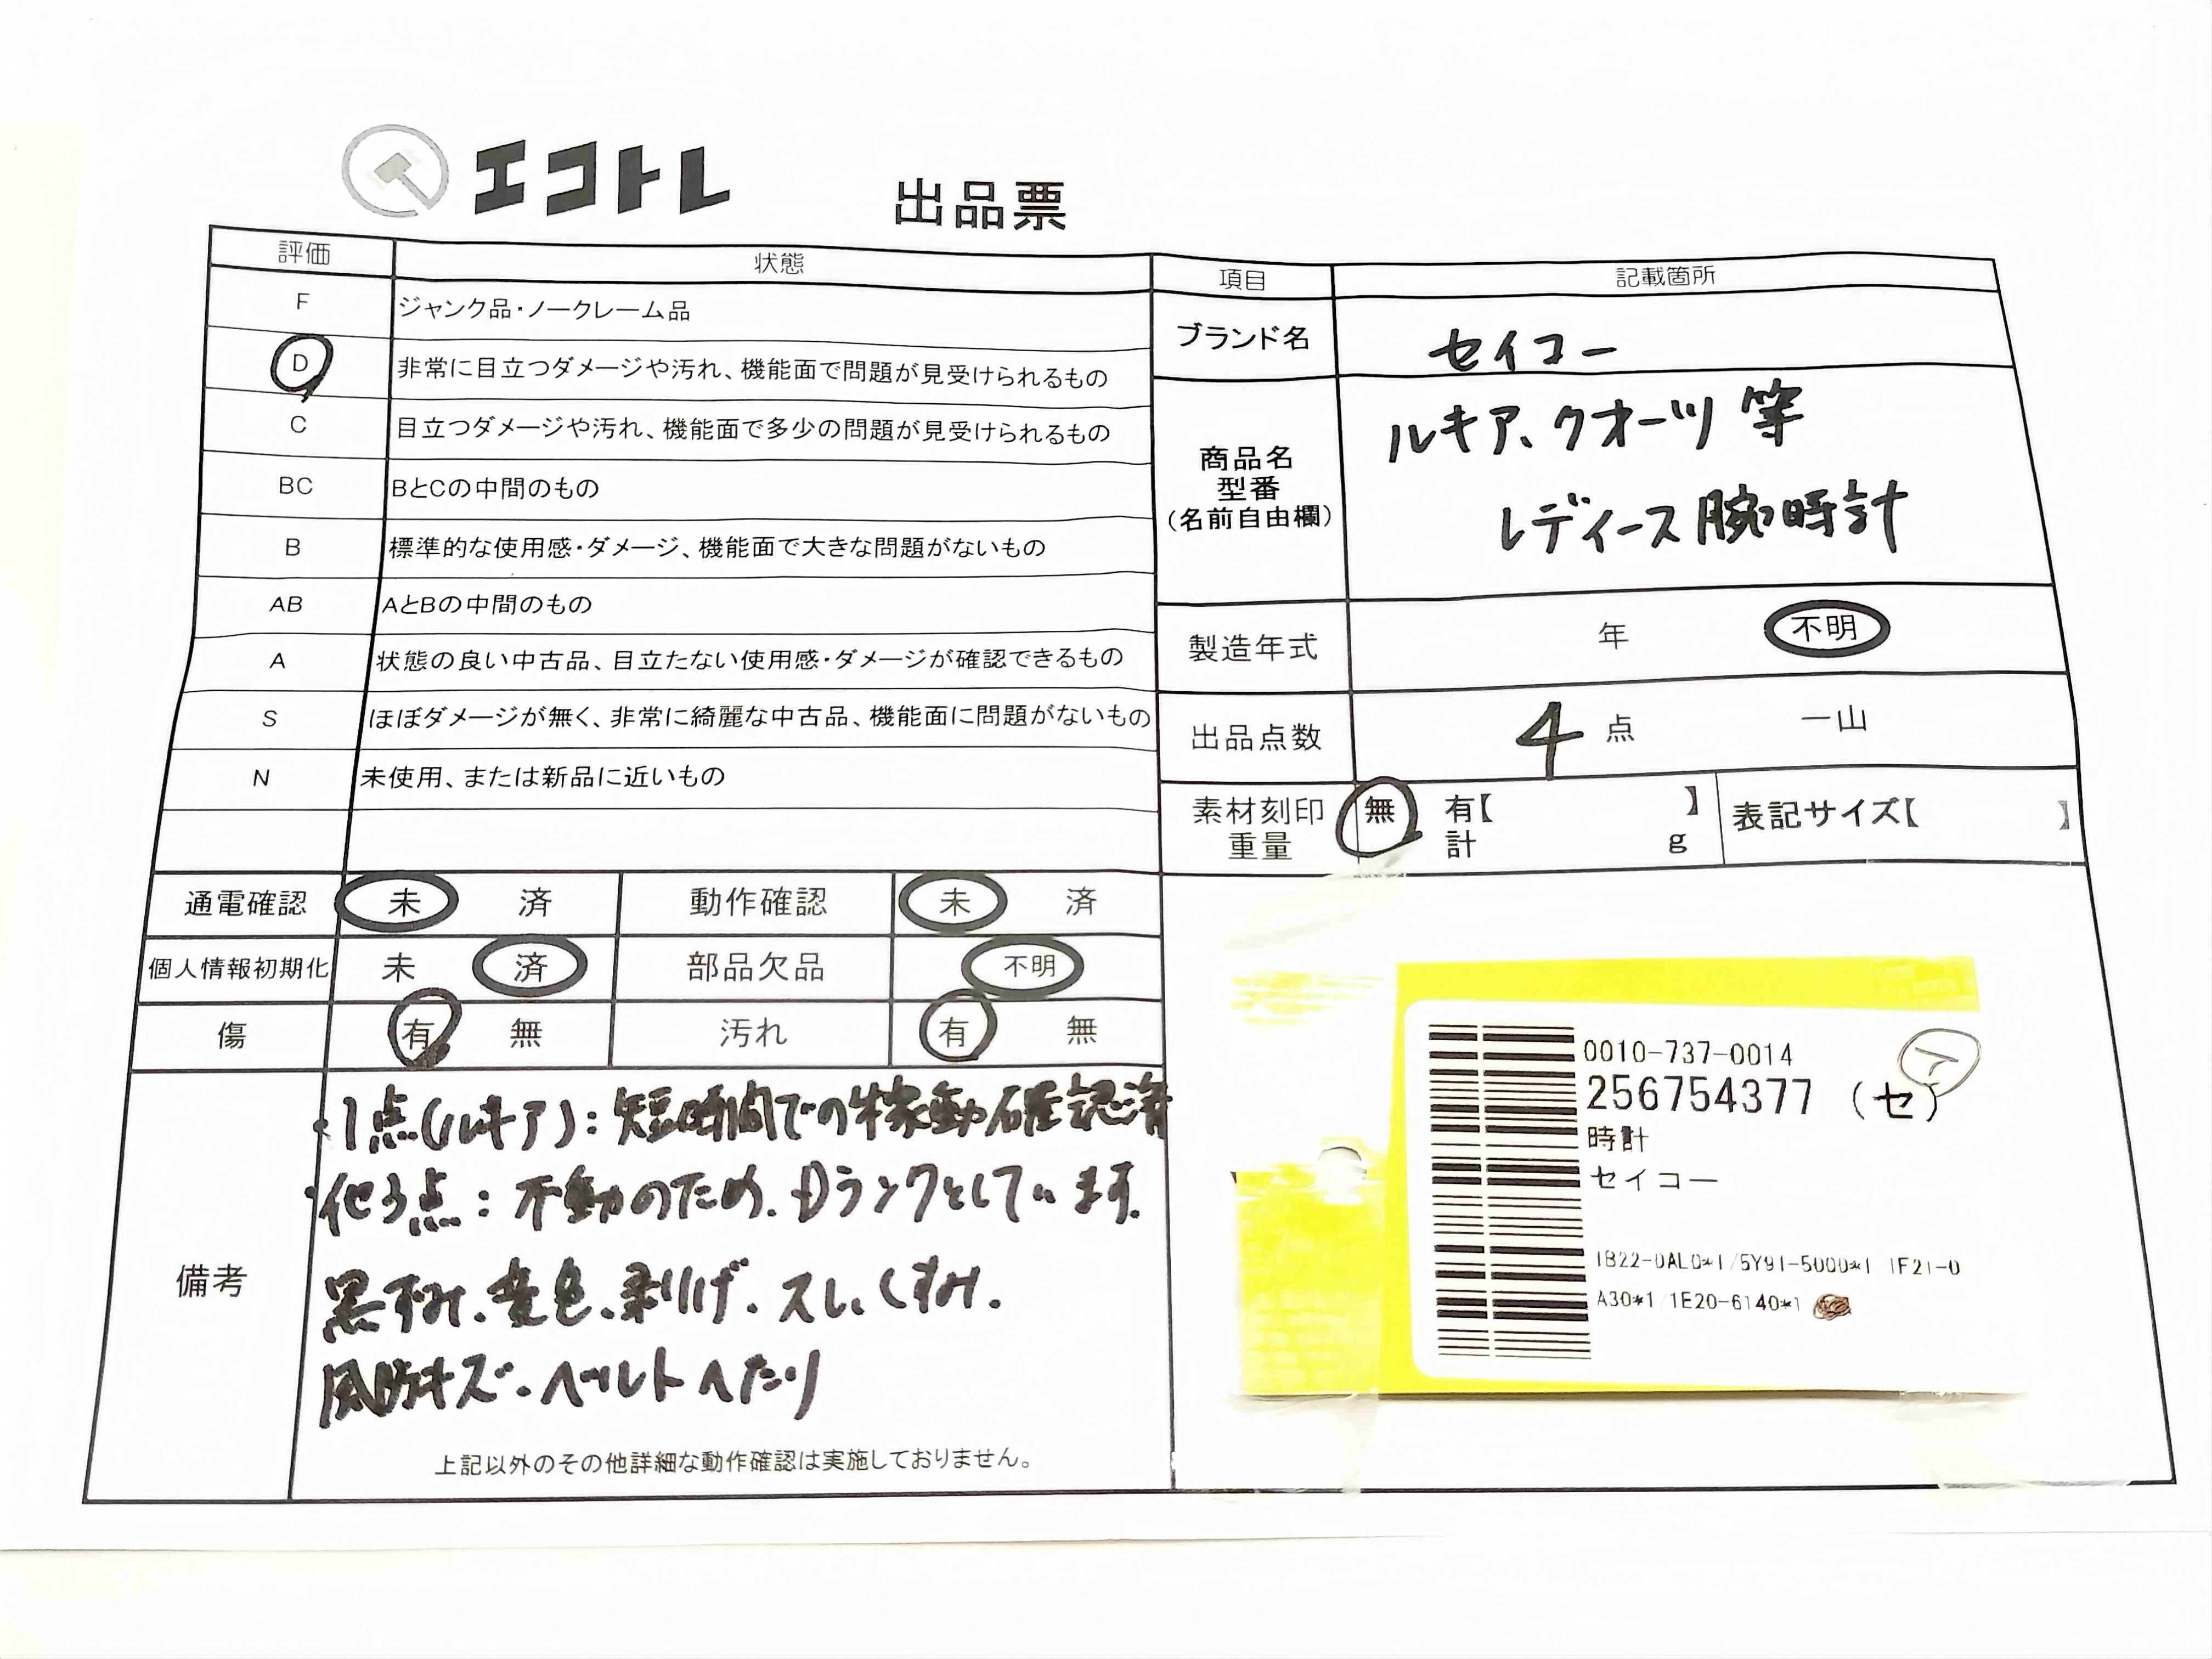 エコトレ
出品票
評価 状態
F ジャンク品・ノークレーム品
D 非常に目立つダメージや汚れ、機能面で問題が見受けられるもの
C 目立つダメージや汚れ、機能面で多少の問題が見受けられるもの
BC BとCの中間のもの
B 標準的な使用感・ダメージ、機能面で大きな問題がないもの
AB AとBの中間のもの
A 状態の良い中古品、目立たない使用感・ダメージが確認できるもの
S ほぼダメージが無く、非常に綺麗な中古品、機能面に問題がないもの
N 未使用、または新品に近いもの
項目 記載箇所
ブランド名 セイコー
商品名
型番
(名前自由欄)
ルキア、クオーツ 等
レディース腕時計
製造年式 年 不明
出品点数 4 点 一山
素材刻印 無 有【 】 表記サイズ【 】
重量 計 g
通電確認 未 済 動作確認 未 済
個人情報初期化 未 済 部品欠品 不明
傷 有 無 汚れ 有 無
備考
・1点(ルキア):短時間での稼動確認済
・他3点:不動のため、Dランクとしています。
黒ずみ、変色、剥げ、スレ、くすみ、
風防キズ、ベルトヘたり
上記以外のその他詳細な動作確認は実施しておりません。
0010-737-0014
256754377 (セ)
時計
セイコー
1B22-0AL0*1/5Y91-5000*1 1F21-0
A30*1/1E20-6140*1